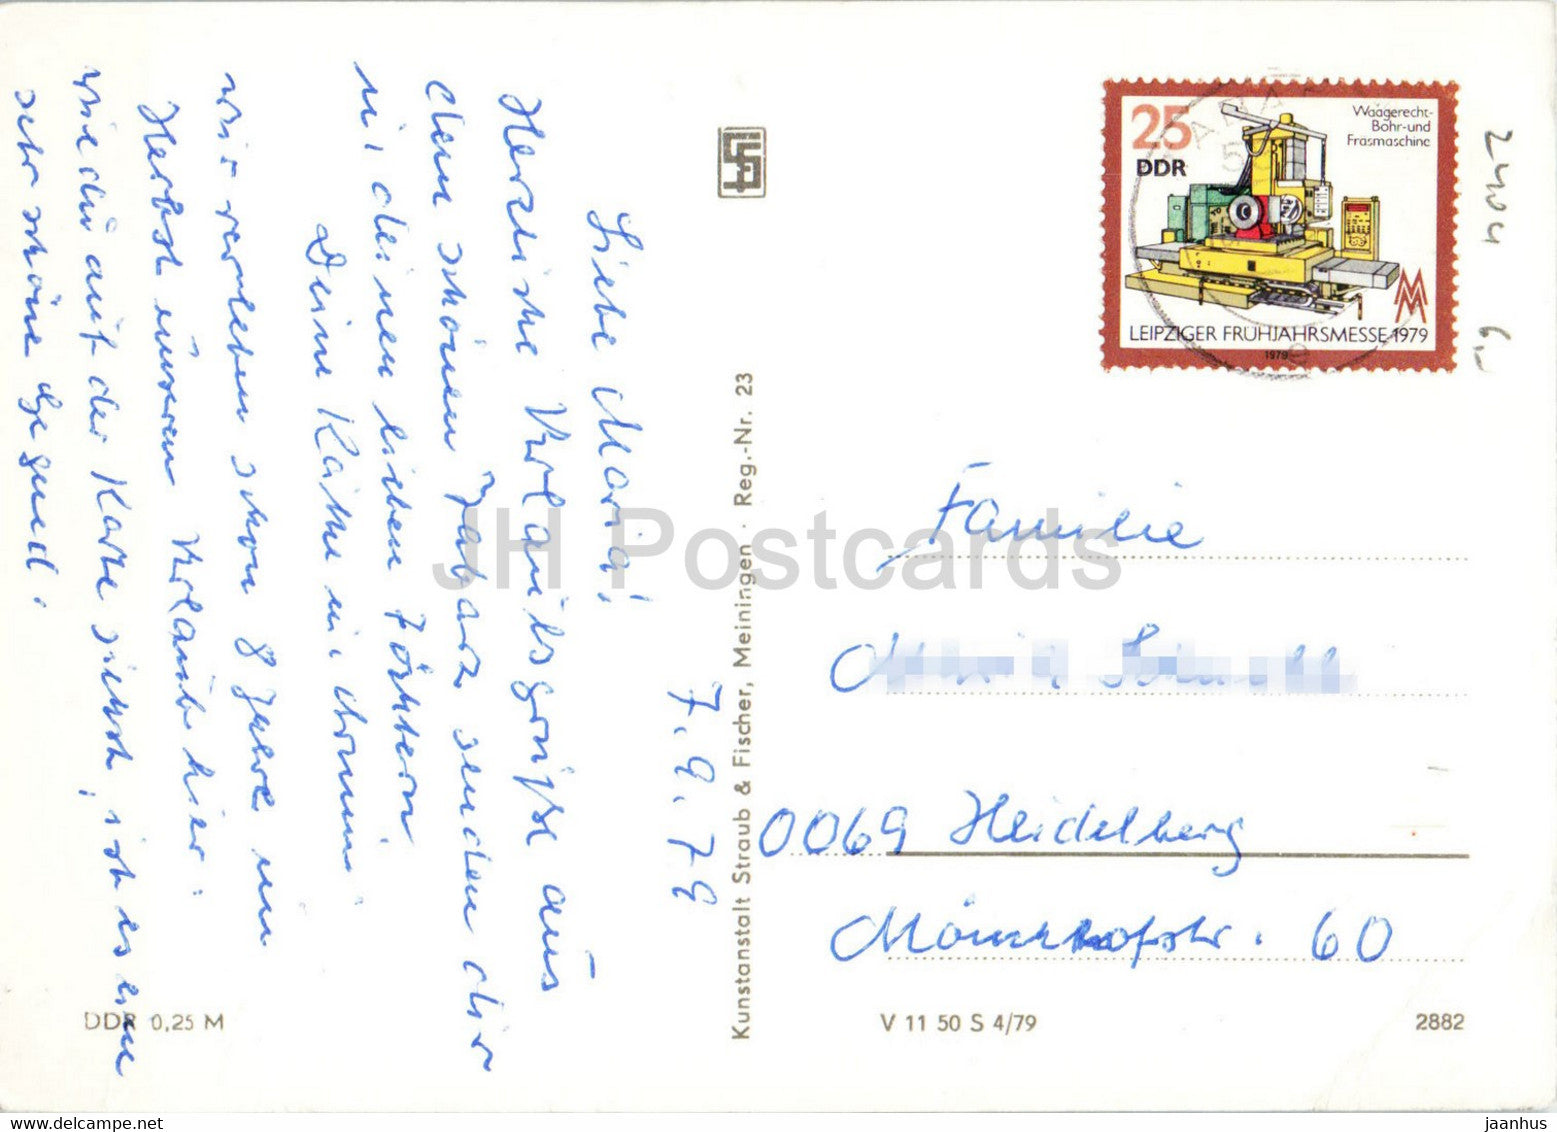 7.9.79
Liebe Maria!
Herzliche Urlaubsgrüße aus
dem schönen Tabarz senden dir
mit deinen lieben Töchtern
Deine Käthe mit
wir verleben schon 8 Jahre im
Herbst unseren Urlaub hier.
wie du auf der Karte siehst, ist es eine
sehr schöne Gegend.
DDR 0,25 M
Kunstanstalt Straub & Fischer, Meiningen · Reg.-Nr. 23
25
DDR
Waagerecht-
Bohr- und
Fräsmaschine
MM
LEIPZIGER FRÜHJAHRSMESSE 1979
1979
6,-
Familie
0069 Heidelberg
Mönchhofstr. 60
V 11 50 S 4/79
2882
JH Postcards
www.delcampe.net
jaanhus